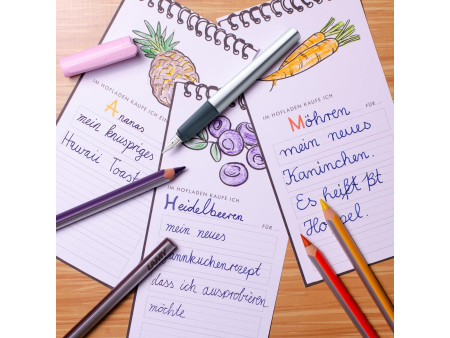 IM HOFLADEN KAUFE ICH
Ananas
mein knuspriges
Hawaii Toast
IM HOFLADEN KAUFE ICH
FÜR ...
Heidelbeeren
mein neues
dass ich ausprobieren
möchte
IM HOFLADEN KAUFE ICH
FÜR ...
Möhren
mein neues
Kaninchen.
Es heißt
LAMY